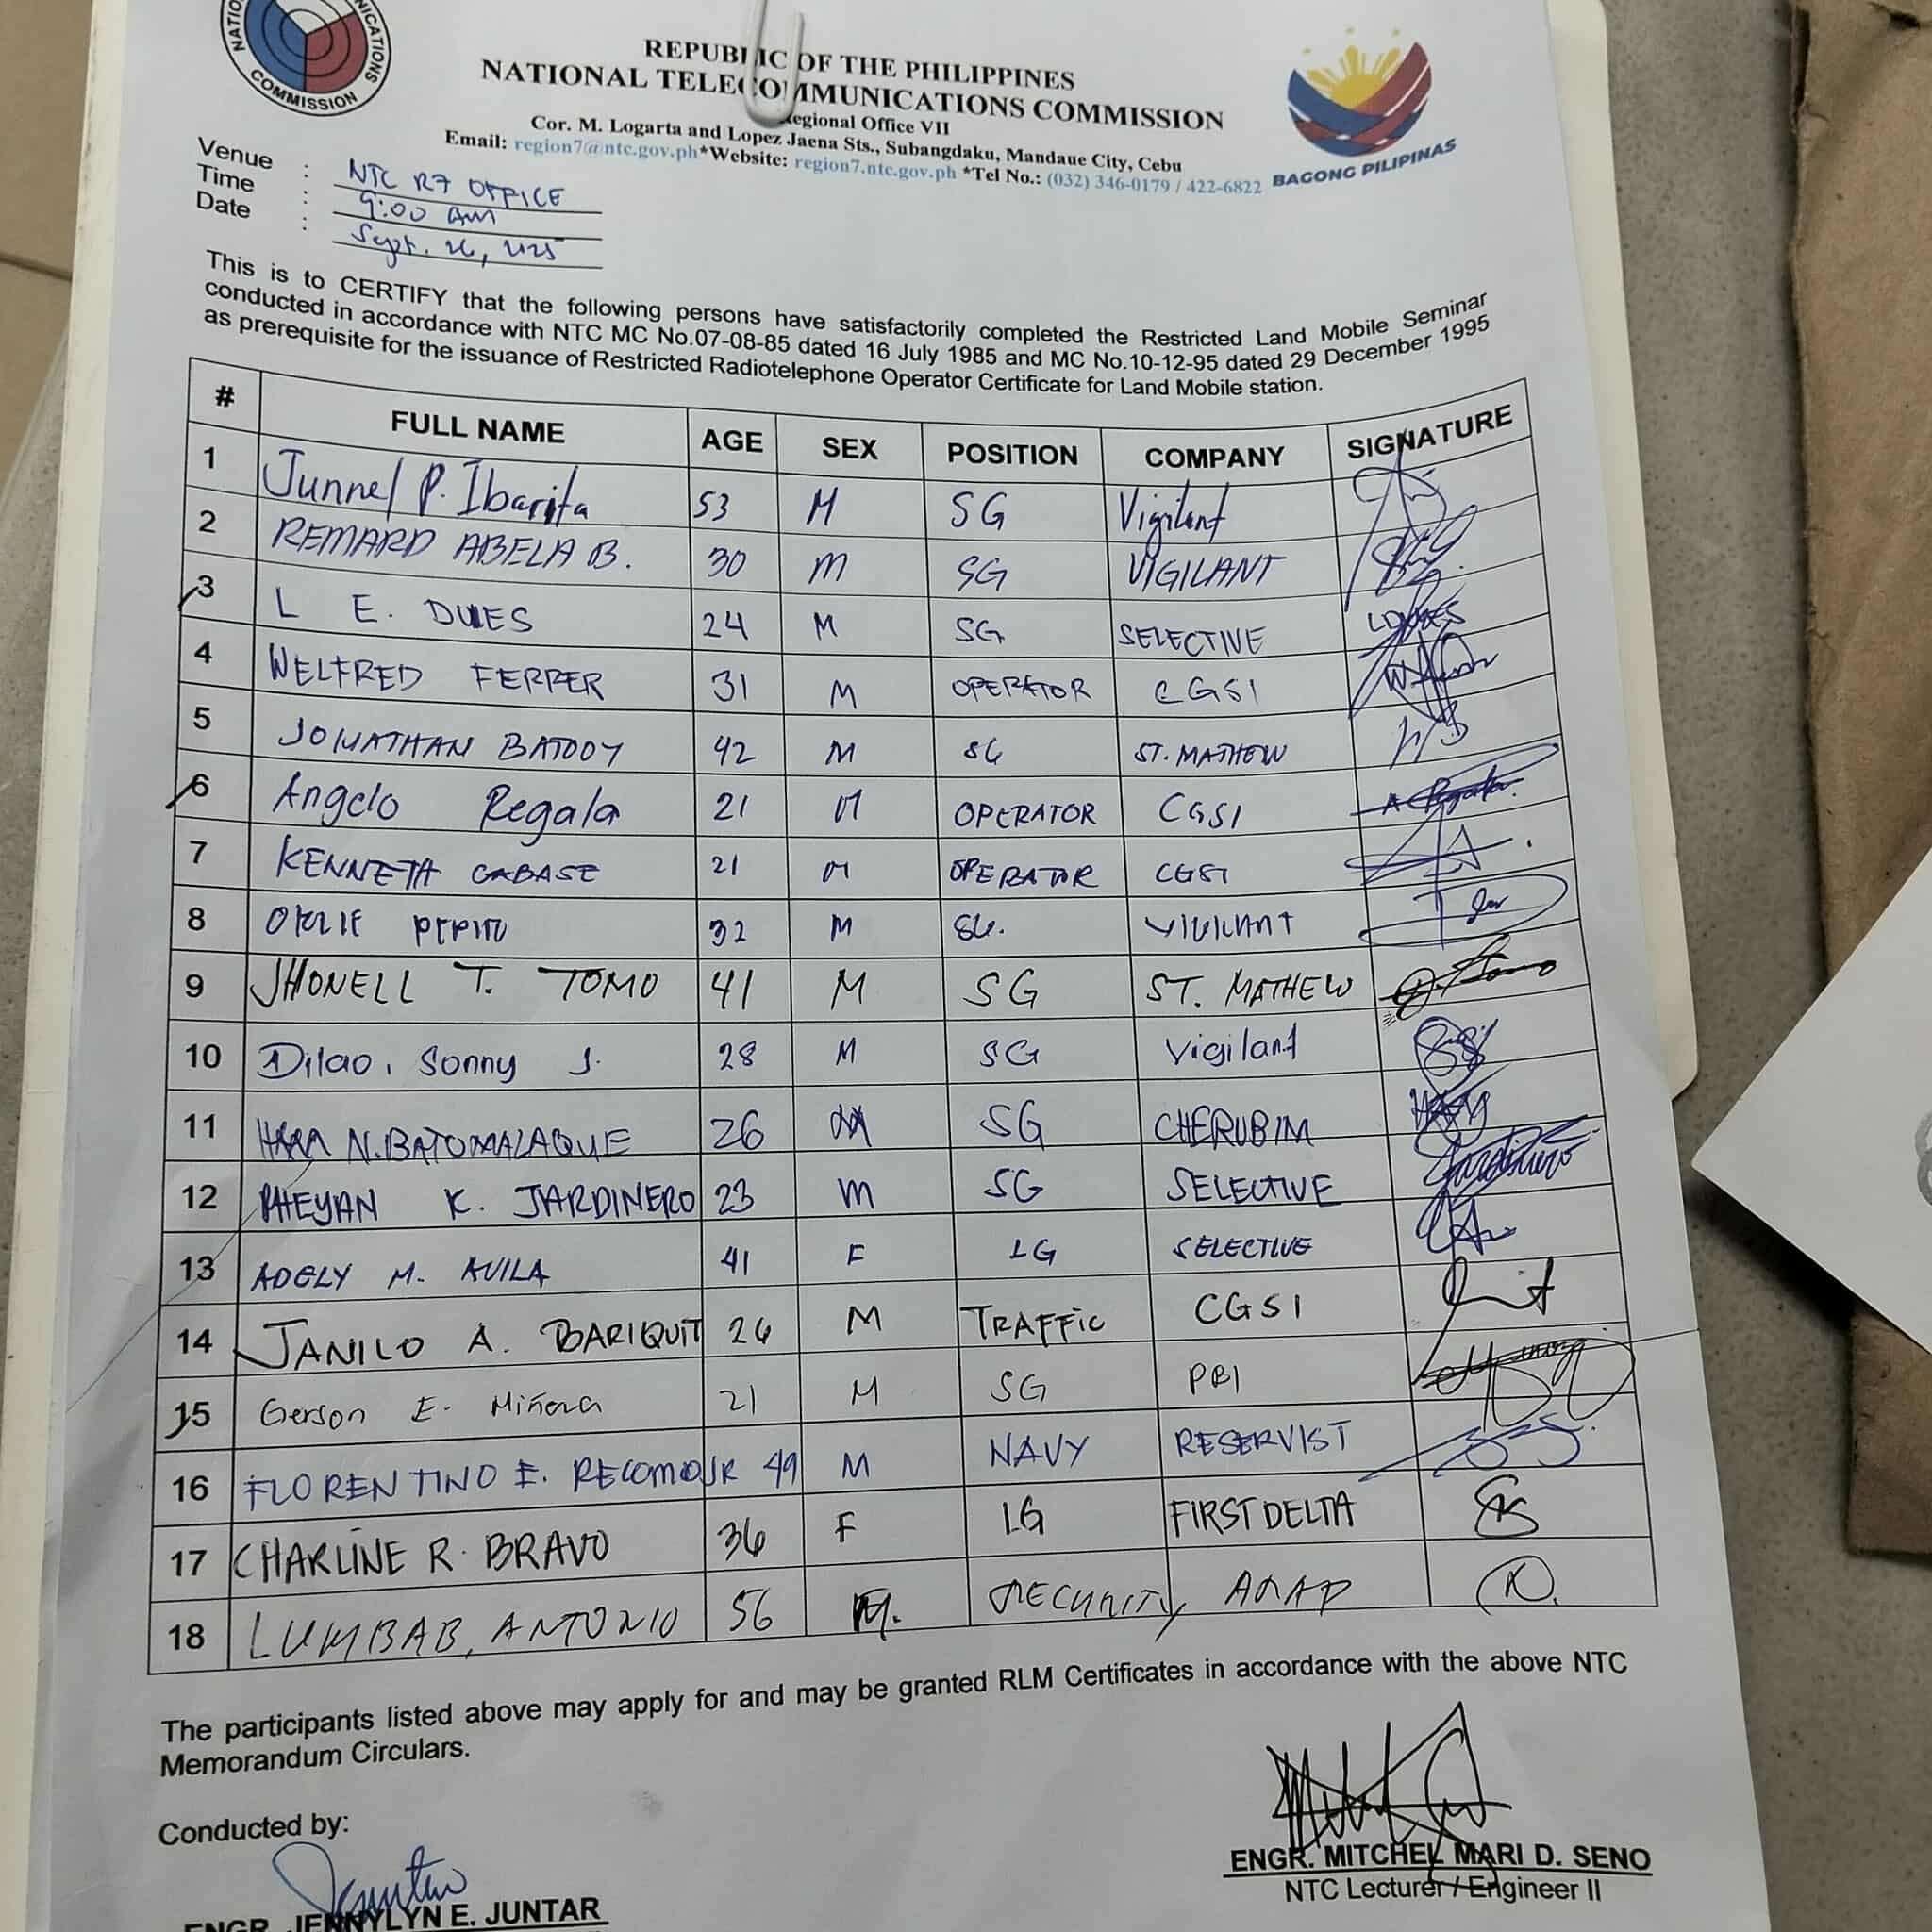 COMMISSION
REPUBLIC OF THE PHILIPPINES
NATIONAL TELECOMMUNICATIONS COMMISSION
Regional Office VII
Cor. M. Logarta and Lopez Jaena Sts., Subangdaku, Mandaue City, Cebu
Email: region7@ntc.gov.ph*Website: region7.ntc.gov.ph *Tel No.: (032) 346-0179 / 422-6822
BAGONG PILIPINAS
Venue : NTC R7 OFFICE
Time : 9:00 AM
Date : Sept. 26, 2025
This is to CERTIFY that the following persons have satisfactorily completed the Restricted Land Mobile Seminar
conducted in accordance with NTC MC No.07-08-85 dated 16 July 1985 and MC No.10-12-95 dated 29 December 1995
as prerequisite for the issuance of Restricted Radiotelephone Operator Certificate for Land Mobile station.
# FULL NAME AGE SEX POSITION COMPANY SIGNATURE
1 Junnel P. Ibarita 53 M SG Vigilant
2 REMARD ABELA B. 30 M SG VIGILANT
3 L E. 24 M SG SELECTIVE
4 WELFRED FERRER 31 M OPERATOR CGSI
5 JONATHAN 42 M SG ST. MATHEW
6 Angelo Regala 21 M OPERATOR CGSI
7 KENNETH CABASE 21 M OPERATOR CGSI
8 PEPITO 32 M SG. VIGILANT
9 JHONELL T. TOMO 41 M SG ST. MATHEW
10 Dilao, Sonny J. 28 M SG Vigilant
11 N. BATOMALAQUE 26 M SG CHERUBIM
12 RHEYAN K. JARDINERO 23 M SG SELECTIVE Jardinero
13 ADELY M. AVILA 41 F LG SELECTIVE
14 JANILO A. BARIQUIT 26 M TRAFFIC CGSI
15 Gerson E. Miñoza 21 M SG PBI
16 FLORENTINO E. RECOMO JR 49 M NAVY RESERVIST
17 CHARLINE R. BRAVO 36 F LG FIRST DELTA
18 LUMBAB, ANTONIO 56 M. SECURITY
The participants listed above may apply for and may be granted RLM Certificates in accordance with the above NTC
Memorandum Circulars.
Conducted by:
ENGR. JENNYLYN E. JUNTAR
ENGR. MITCHEL MARI D. SENO
NTC Lecturer / Engineer II